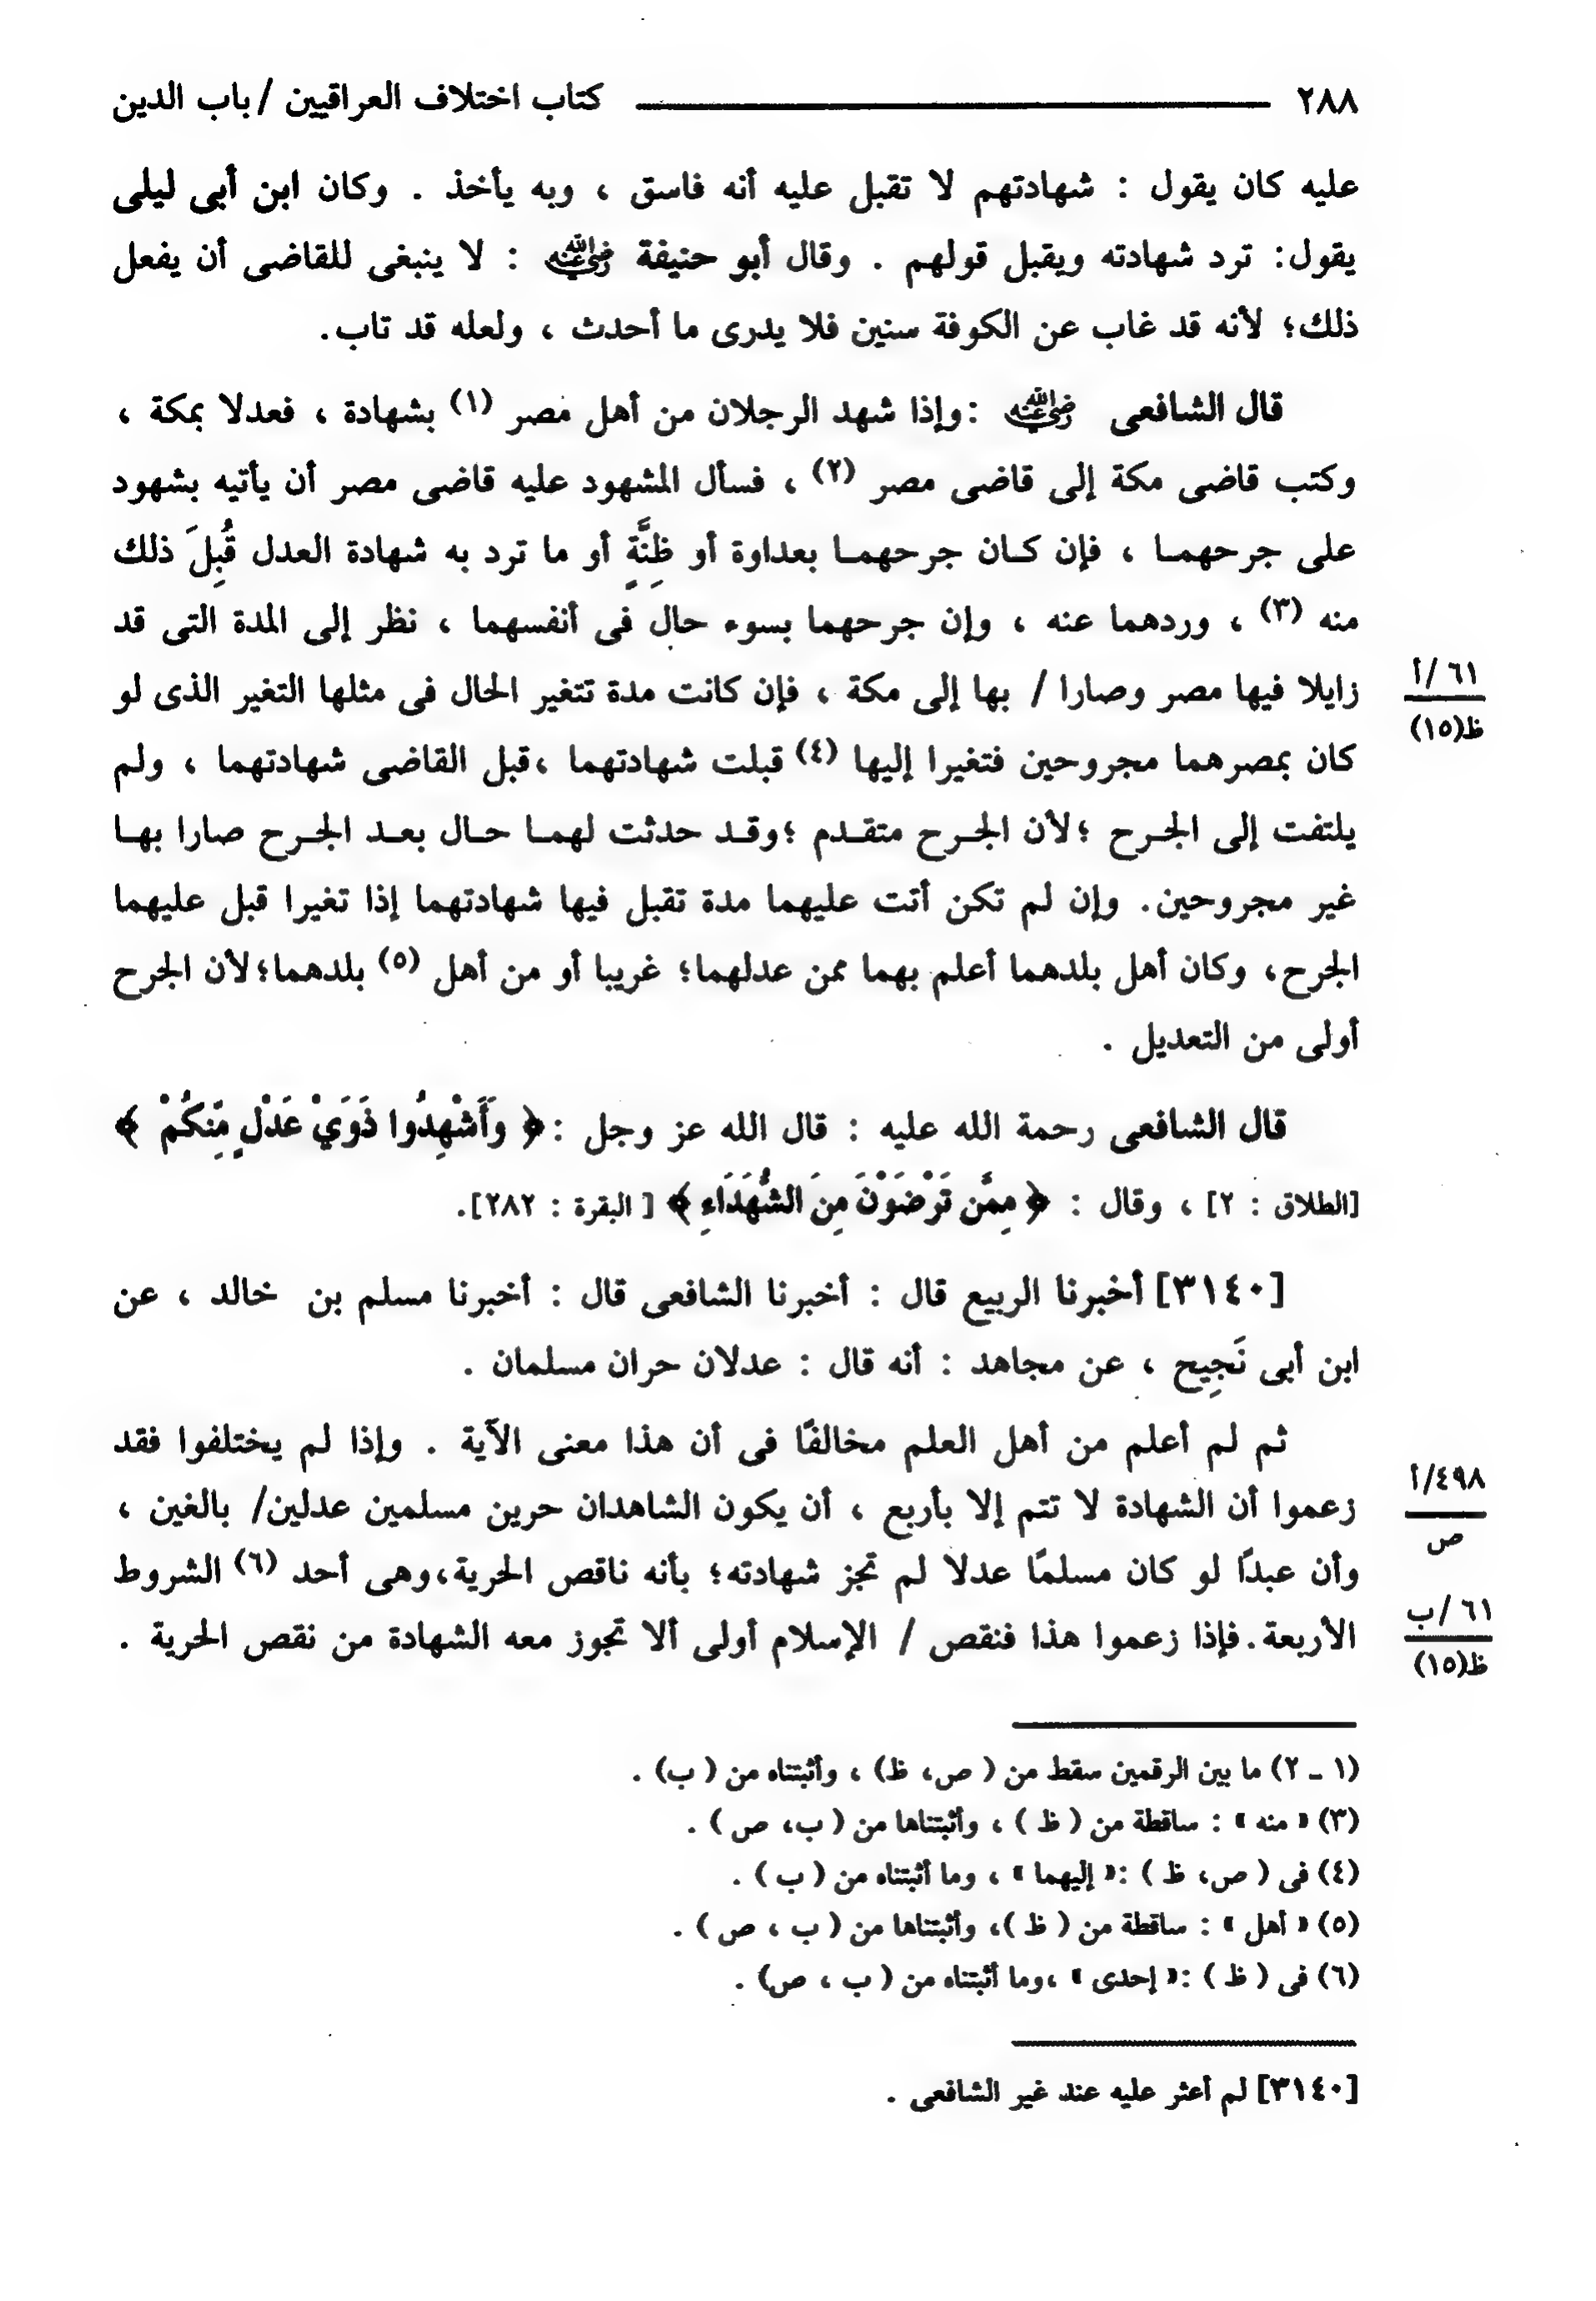 ٢٨٨ كتاب اختلاف العراقيين / باب الدين
عليه كان يقول : شهادتهم لا تقبل عليه أنه فاسق ، وبه يأخذ . وكان ابن أبى ليلى
يقول: ترد شهادته ويقبل قولهم . وقال أبو حنيفة رضي الله عنه : لا ينبغى للقاضى أن يفعل
ذلك؛ لأنه قد غاب عن الكوفة سنين فلا يدرى ما أحدث ، ولعله قد تاب.
قال الشافعى رضي الله عنه :وإذا شهد الرجلان من أهل مصر (١) بشهادة ، فعدلا بمكة ،
وكتب قاضى مكة إلى قاضى مصر (٢) ، فسأل المشهود عليه قاضى مصر أن يأتيه بشهود
على جرحهما ، فإن كان جرحهما بعداوة أو ظِنَّةٍ أو ما ترد به شهادة العدل قُبِلَ ذلك
منه (٣) ، وردهما عنه ، وإن جرحهما بسوء حال فى أنفسهما ، نظر إلى المدة التى قد
زايلا فيها مصر وصارا / بها إلى مكة ، فإن كانت مدة تتغير الحال فى مثلها التغير الذى لو
٦١ /أ
ظ(١٥)
كان بمصرهما مجروحين فتغيرا إليها (٤) قبلت شهادتهما ،قبل القاضى شهادتهما ، ولم
يلتفت إلى الجرح ؛لأن الجرح متقدم ؛وقد حدثت لهما حال بعد الجرح صارا بها
غير مجروحين. وإن لم تكن أتت عليهما مدة تقبل فيها شهادتهما إذا تغيرا قبل عليهما
الجرح، وكان أهل بلدهما أعلم بهما ممن عدلهما؛ غريبا أو من أهل (٥) بلدهما؛لأن الجرح
أولى من التعديل .
قال الشافعى رحمة الله عليه : قال الله عز وجل :﴿ وَأَشْهِدُوا ذَوَيْ عَدْلٍ مِّنكُمْ ﴾
[الطلاق : ٢] ، وقال : ﴿ مِمَّن تَرْضَوْنَ مِنَ الشُّهَدَاءِ ﴾ [ البقرة : ٢٨٢].
[٣١٤٠] أخبرنا الربيع قال : أخبرنا الشافعى قال : أخبرنا مسلم بن خالد ، عن
ابن أبى نَجِيح ، عن مجاهد : أنه قال : عدلان حران مسلمان .
ثم لم أعلم من أهل العلم مخالفًا فى أن هذا معنى الآية . وإذا لم يختلفوا فقد
زعموا أن الشهادة لا تتم إلا بأربع ، أن يكون الشاهدان حرين مسلمين عدلين/ بالغين ،
٤٩٨/أ
ص
وأن عبدًا لو كان مسلمًا عدلا لم تجز شهادته؛ بأنه ناقص الحرية،وهى أحد (٦) الشروط
الأربعة.فإذا زعموا هذا فنقص / الإسلام أولى ألا تجوز معه الشهادة من نقص الحرية .
٦١ /ب
ظ(١٥)
(١ ـ ٢) ما بين الرقمين سقط من ( ص، ظ) ، وأثبتناه من ( ب) .
(٣) « منه » : ساقطة من ( ظ ) ، وأثبتناها من ( ب، ص ) .
(٤) فى ( ص، ظ ) :« إليهما » ، وما أثبتناه من ( ب ) .
(٥) « أهل » : ساقطة من ( ظ )، وأثبتناها من ( ب ، ص ) .
(٦) فى ( ظ ) :« إحدى » ،وما أثبتناه من ( ب ، ص) .
[٣١٤٠] لم أعثر عليه عند غير الشافعى .